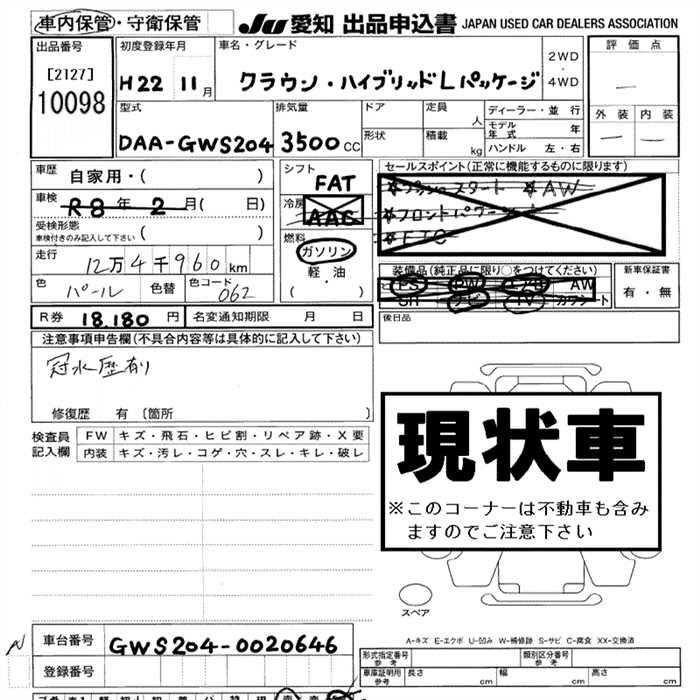 車内保管・守衛保管
JU 愛知 出品申込書 JAPAN USED CAR DEALERS ASSOCIATION
出品番号
[2127]
10098
初度登録年月
H22 11月
車名・グレード
クラウン・ハイブリッドLパッケージ
2WD
・
4WD
評価点
—
外装 内装
— —
型式
DAA-GWS204
排気量
3500cc
ドア
形状
定員 人
積載 kg
ディーラー・並行
モデル年式 年
ハンドル 左・右
車歴 自家用・( )
車検 R8年2月( 日)
受検形態
車検付きのみ記入して下さい ( )
走行 12万4千960km
色 パール 色替 色コード 062
シフト FAT
冷房 AAC
燃料
ガソリン
軽・油
( ・ )
セールスポイント(正常に機能するものに限ります)
☆プッシュスタート ☆AW
☆フロントパワーシート
☆ETC
装備品(純正品に限り○をつけてください)
PS PW エアB AW
SR ナビ TV カワシート
新車保証書
有・無
R券 18.180円 名変通知期限 月 日
後日品
注意事項申告欄(不具合内容等は具体的に記入して下さい)
冠水歴有り
修復歴 有〔箇所 〕
検査員記入欄
FW キズ・飛石・ヒビ割・リペア跡・X要
内装 キズ・汚レ・コゲ・穴・スレ・キレ・破レ
現状車
※このコーナーは不動車も含み
ますのでご注意下さい
スペア
A-キズ E-エクボ U-凹み W-補修跡 S-サビ C-腐食 XX-交換済
N
車台番号 GWS204-0020646
登録番号
形式指定番号 参考
類別区分番号 参考
車庫証明用 参考 長さ cm 幅 cm 高さ cm